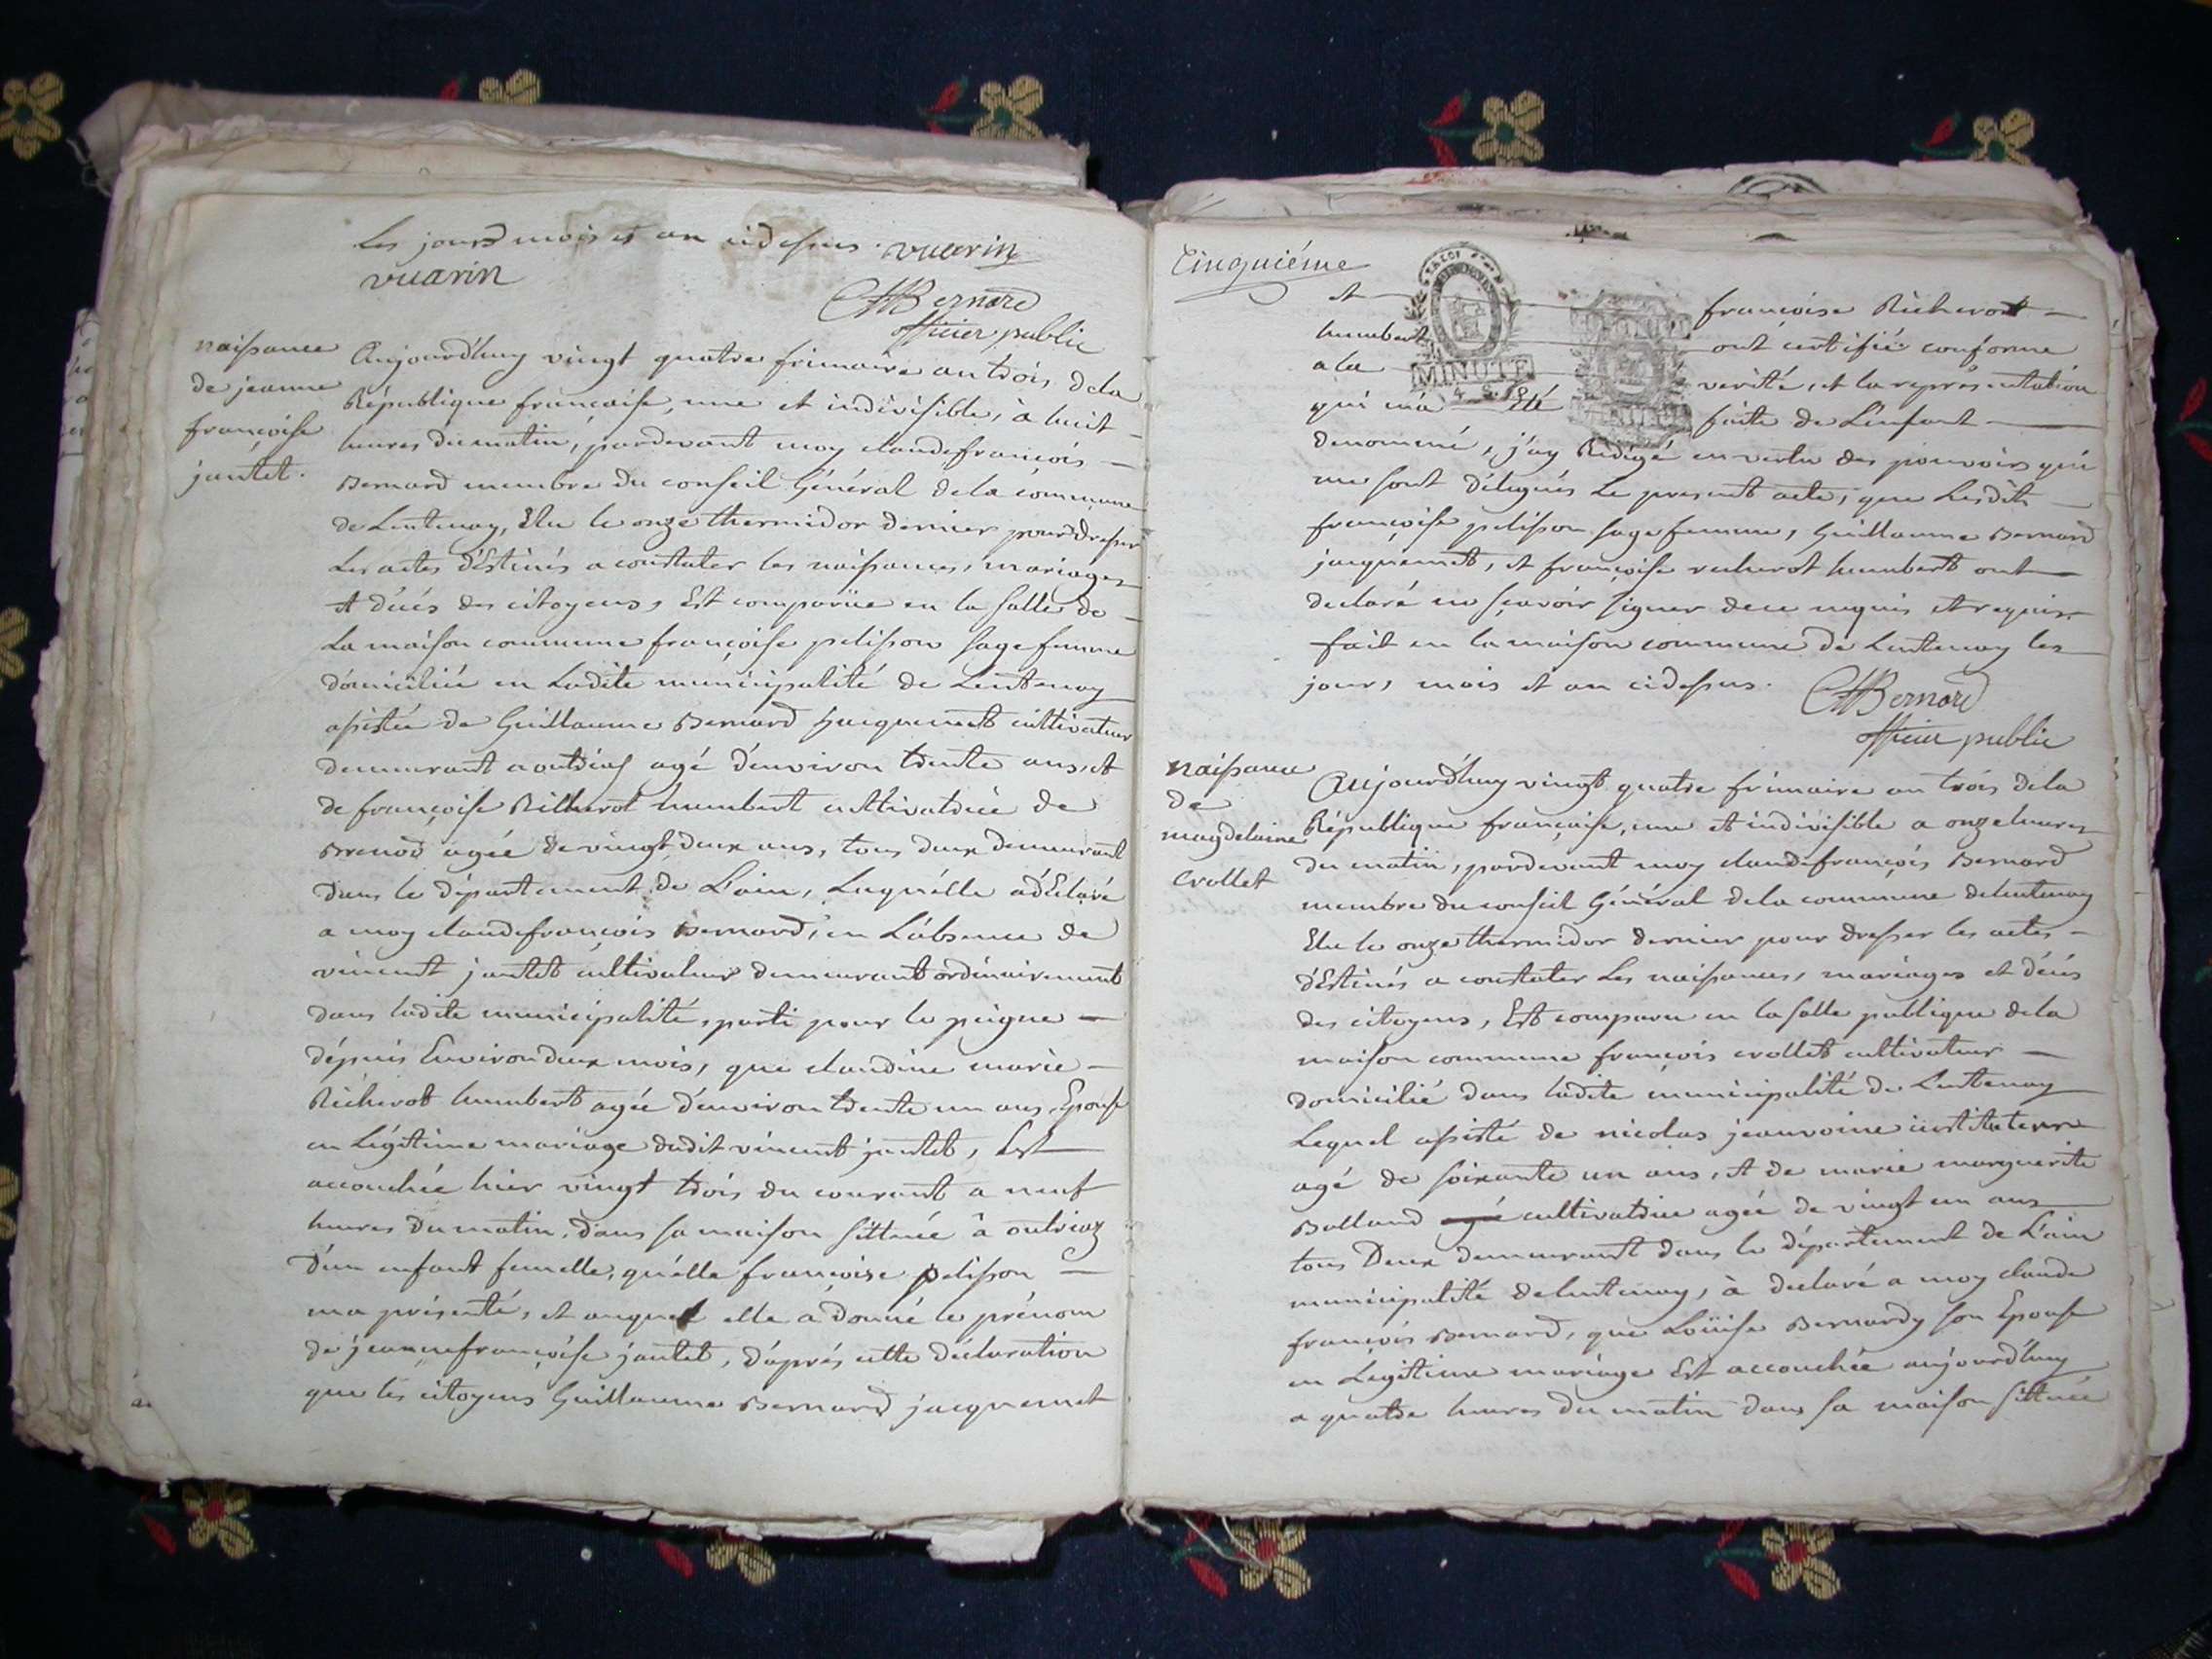 Les jours mois et an cidessus. vuarin
vuarin
CfBernard
officier public
naissance
de jeanne
françoise
jantet.
Aujourd'huy vingt quatre frimaire an trois dela
République française, une et indivisible, à huit
heures du matin, pardevant moy claudefrançois
Bernard membre du conseil Général dela commune
de Lentenay, Elu le onze thermidor dernier pour dresser
Les actes déstinés a constater les naissances, mariages
et décés des citoyens, Est comparüe en la salle de
La maison commune françoise pelisson sage femme
domiciliée en Ladite municipalité de Lentenay
assistée de Guillaume Bernard jacquemet cultivateur
demeurant a outriaz agé d'environ trente ans, et
de françoise Richerot humbert cultivatrice de
Brenod agée de vingt deux ans, tous deux demeurant
dans le département de L'ain, Laquélle a déclaré
a moy claudefrançois Bernard, en L'absence de
vincent jantet cultivateur demeurant ordinairement
dans ladite municipalité, parti pour le peigne
dépuis Environ deux mois, que claudine marie
Richerot humbert agée d'environ trente un ans, Epouse
en Légitime mariage dudit vincent jantet, Est
accouchée hier vingt trois du courant a neuf
heures du matin, dans sa maison sittuée à outriaz
d'un enfant femelle, qu'élle françoise pelisson
ma présenté, et auquel elle a donné le prénom
de jeannefrançoise jantet, d'aprés cette déclaration
que les citoyens Guillaume Bernard jacquemet
Cinquiéme
et françoise Richerot
humbert ont certifié conforme
a la verité, et la représentation
MINUTE
qui m'a Eté faite de L'enfant
denommé, j'ay Rédigé en vertu des pouvoirs qui
me sont délegués Le present acte, que Lesdits
françoise pelisson sage femme, Guillaume Bernard
jacquemet, et françoise richerot humbert ont
declaré ne sçavoir signer de ce enquis et requis.
fait en la maison commune de Lentenay les
jour, mois et an cidessus.
CfBernard
officier public
naissance
de
magdelaine
Crollet
Aujourd'huy vingt quatre frimaire an trois dela
République française, une et indivisible a onze heures
du matin, pardevant moy claudefrançois Bernard
membre du conseil Général dela commune delentenay
Elu le onze thermidor dernier pour dresser les actes
déstinés a constater Les naissances, mariages et décés
des citoyens, Est comparu en la salle publique dela
maison commune françois crollet cultivateur
domicilié dans ladite municipalité de Lentenay
Lequel assisté de nicolas jeanvoine instituteur
agé de soixante un ans, et de marie marguerite
Balland agée cultivatrice agée de vingt un ans
tous Deux demeurant dans le département de L'ain
municipalité delentenay, à declaré a moy claude
françois Bernard, que Loüise Bernardy son Epouse
en Legitime mariage Est accouchée aujourd'huy
a quatre heures du matin dans sa maison sittuée